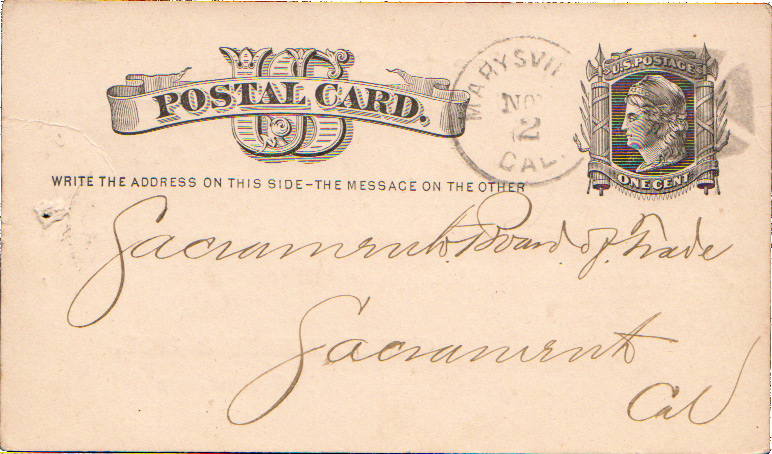 US
POSTAL CARD.
WRITE THE ADDRESS ON THIS SIDE–THE MESSAGE ON THE OTHER
MARYSVI
NOV
2
CAL.
U.S. POSTAGE
ONE CENT
Sacramento Board of Trade
Sacramento
Cal